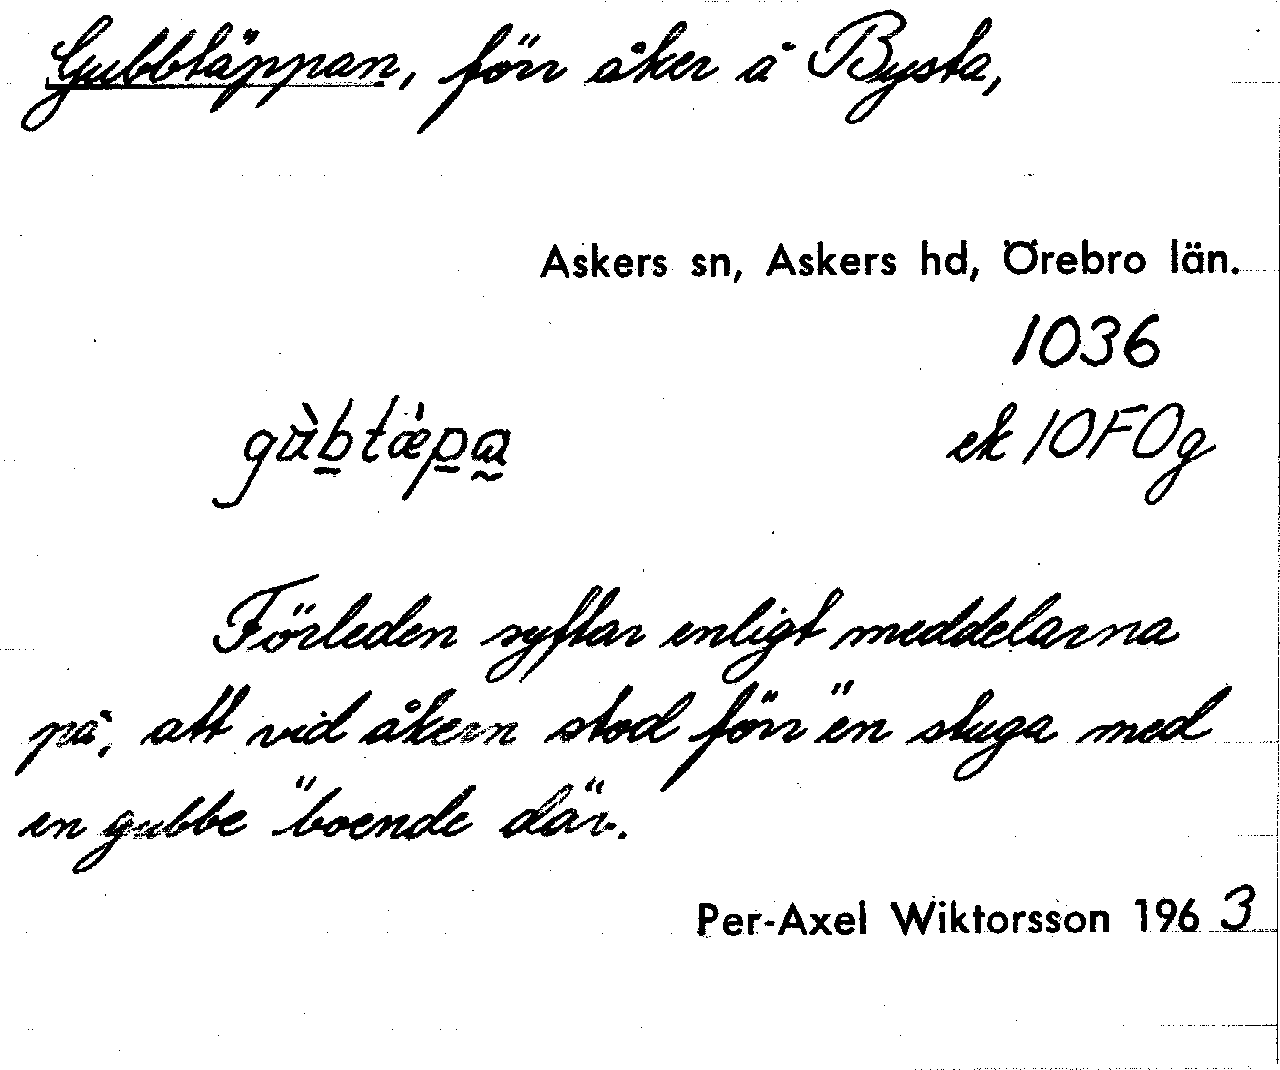 Gubbtäppan, förr åker å Bysta,
Askers sn, Askers hd, Örebro län.
1036
gùb̲tǽp̲a̰
ek 10F0g
Förleden syftar enligt meddelarna
på, att vid åkern stod förr "en stuga med
en gubbe" boende där.
Per-Axel Wiktorsson 1963